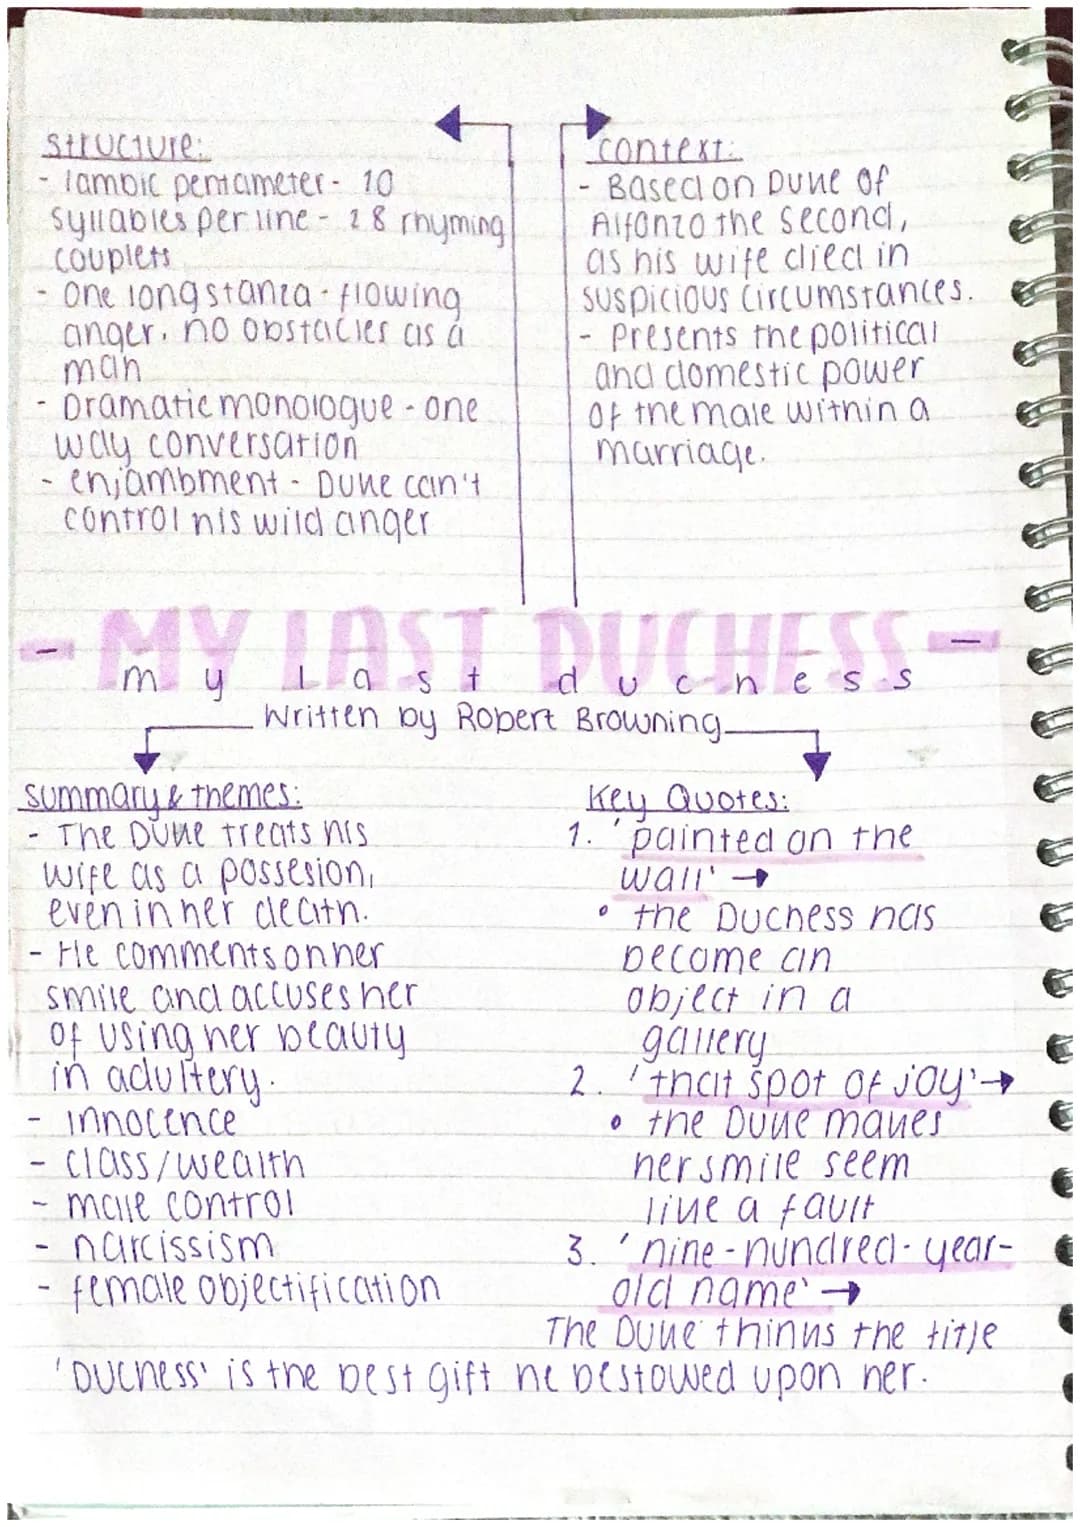 structure:
- Iambic pentameter - 10
syllables per line - 28 rhyming
couplets
- One long stanza - flowing
anger, no obstacles as a
man
- Dramatic monologue - one
way conversation
- enjambment - Duke can't
control his wild anger
context:
- Based on Duke of
Alfonzo the second,
as his wife died in
suspicious circumstances.
- Presents the political
and domestic power
of the male within a
marriage.
- MY LAST DUCHESS -
my last duchess
Written by Robert Browning
summary & themes:
- The Duke treats his
wife as a possesion,
even in her death.
- He comments on her
smile and accuses her
of using her beauty
in adultery.
- innocence
- class/wealth
- male control
- narcissism
- female objectification
Key Quotes:
1. 'painted on the
wall' →
• the Duchess has
become an
object in a
gallery
2. 'that spot of joy' →
• the Duke makes
her smile seem
like a fault
3. 'nine-hundred-year-
old name' →
The Duke thinks the title
'Duchess' is the best gift he bestowed upon her.